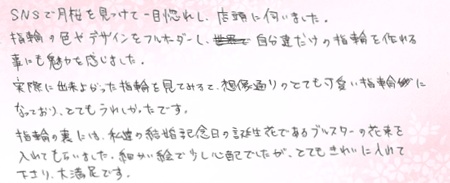 SNSで月桜を見つけて一目惚れし、店頭に伺いました。
指輪の色やデザインをフルオーダーし、自分達だけの指輪を作れる
事にも魅力を感じました。
実際に出来上がった指輪を見てみると、想像通りのとても可愛い指輪に
なっており、とてもうれしかったです。
指輪の裏には、私達の結婚記念日の誕生花であるブルースターの花束を
入れてもらいました。細かい絵で少し心配でしたが、とてもきれいに入れて
下さり、大満足です。